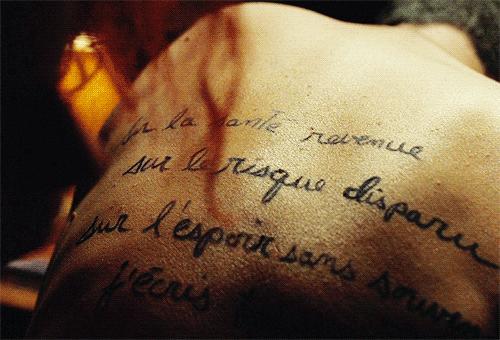 sur la santé revenue
sur le risque disparu
sur l'espoir sans souven
j'écris